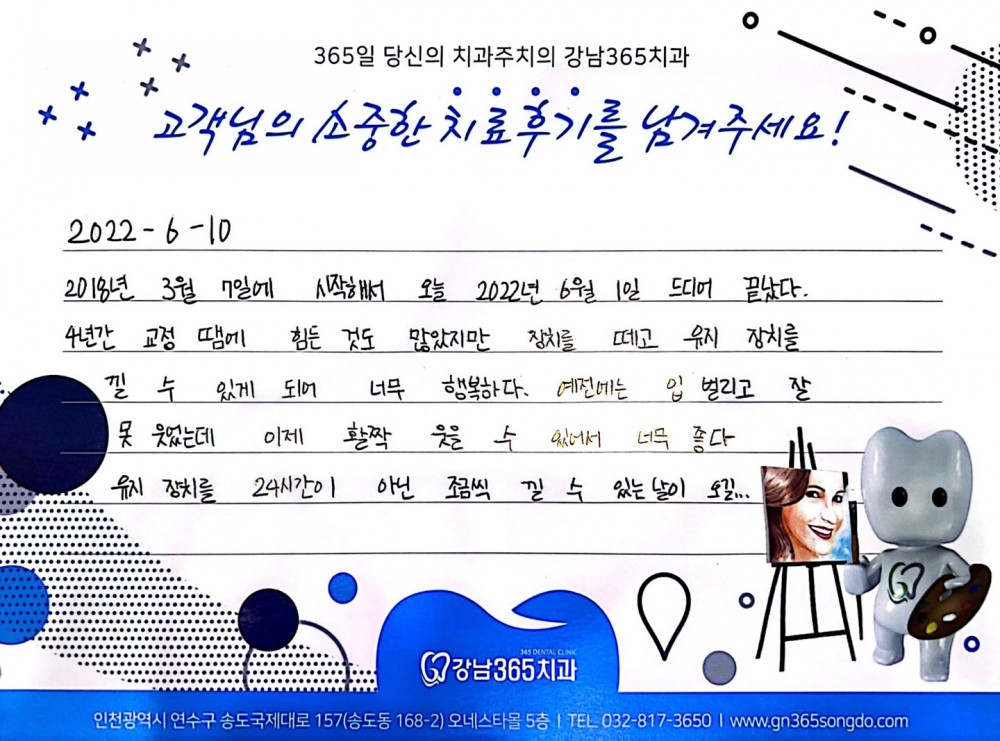 365일 당신의 치과주치의 강남365치과
고객님의 소중한 치료후기를 남겨주세요!
2022-6-10
2018년 3월 7일에 시작해서 오늘 2022년 6월 1일 드디어 끝났다.
4년간 교정 땜에 힘든 것도 많았지만 장치를 떼고 유지 장치를
낄 수 있게 되어 너무 행복하다. 예전에는 입 벌리고 잘
못 웃었는데 이제 활짝 웃을 수 있어서 너무 좋다
유지 장치를 24시간이 아닌 조금씩 낄 수 있는 날이 오길...
365 DENTAL CLINIC
강남365치과
인천광역시 연수구 송도국제대로 157(송도동 168-2) 오네스타몰 5층 | TEL 032-817-3650 | www.gn365songdo.com